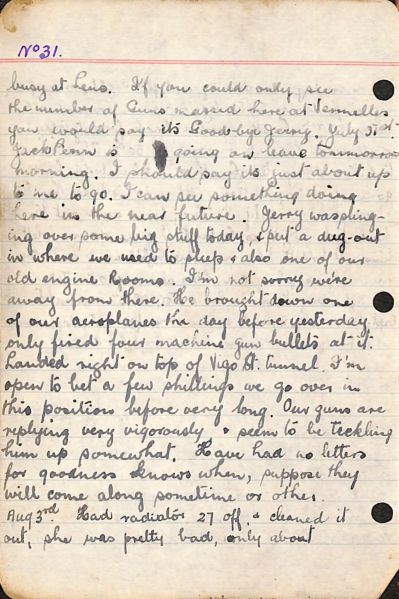 No 31.
busy at Lens. If you could only see
the number of Guns massed here at Vermelles
you would say its Good-bye Jerry. July 31st.
Jack Penn is going on leave tommorrow
morning. I should say its just about up
to me to go. I can see something doing
here in the near future. Jerry was pling-
ing over some big stuff today, & put a dug-out
in where we used to sleep & also one of our
old engine Rooms. I'm not sorry we're
away from there. He brought down one
of our aeroplanes the day before yesterday,
only fired four machine gun bullets at it.
Landed right on top of Vigo St. tunnel. I'm
open to bet a few shillings we go over in
this position before very long. Our guns are
replying very vigorously & seem to be teckling
him up somewhat. Have had no letters
for goodness knows when, suppose they
will come along sometime or other.
Aug 3rd. Had radiator 27 off, & cleaned it
out, she was pretty bad, only about